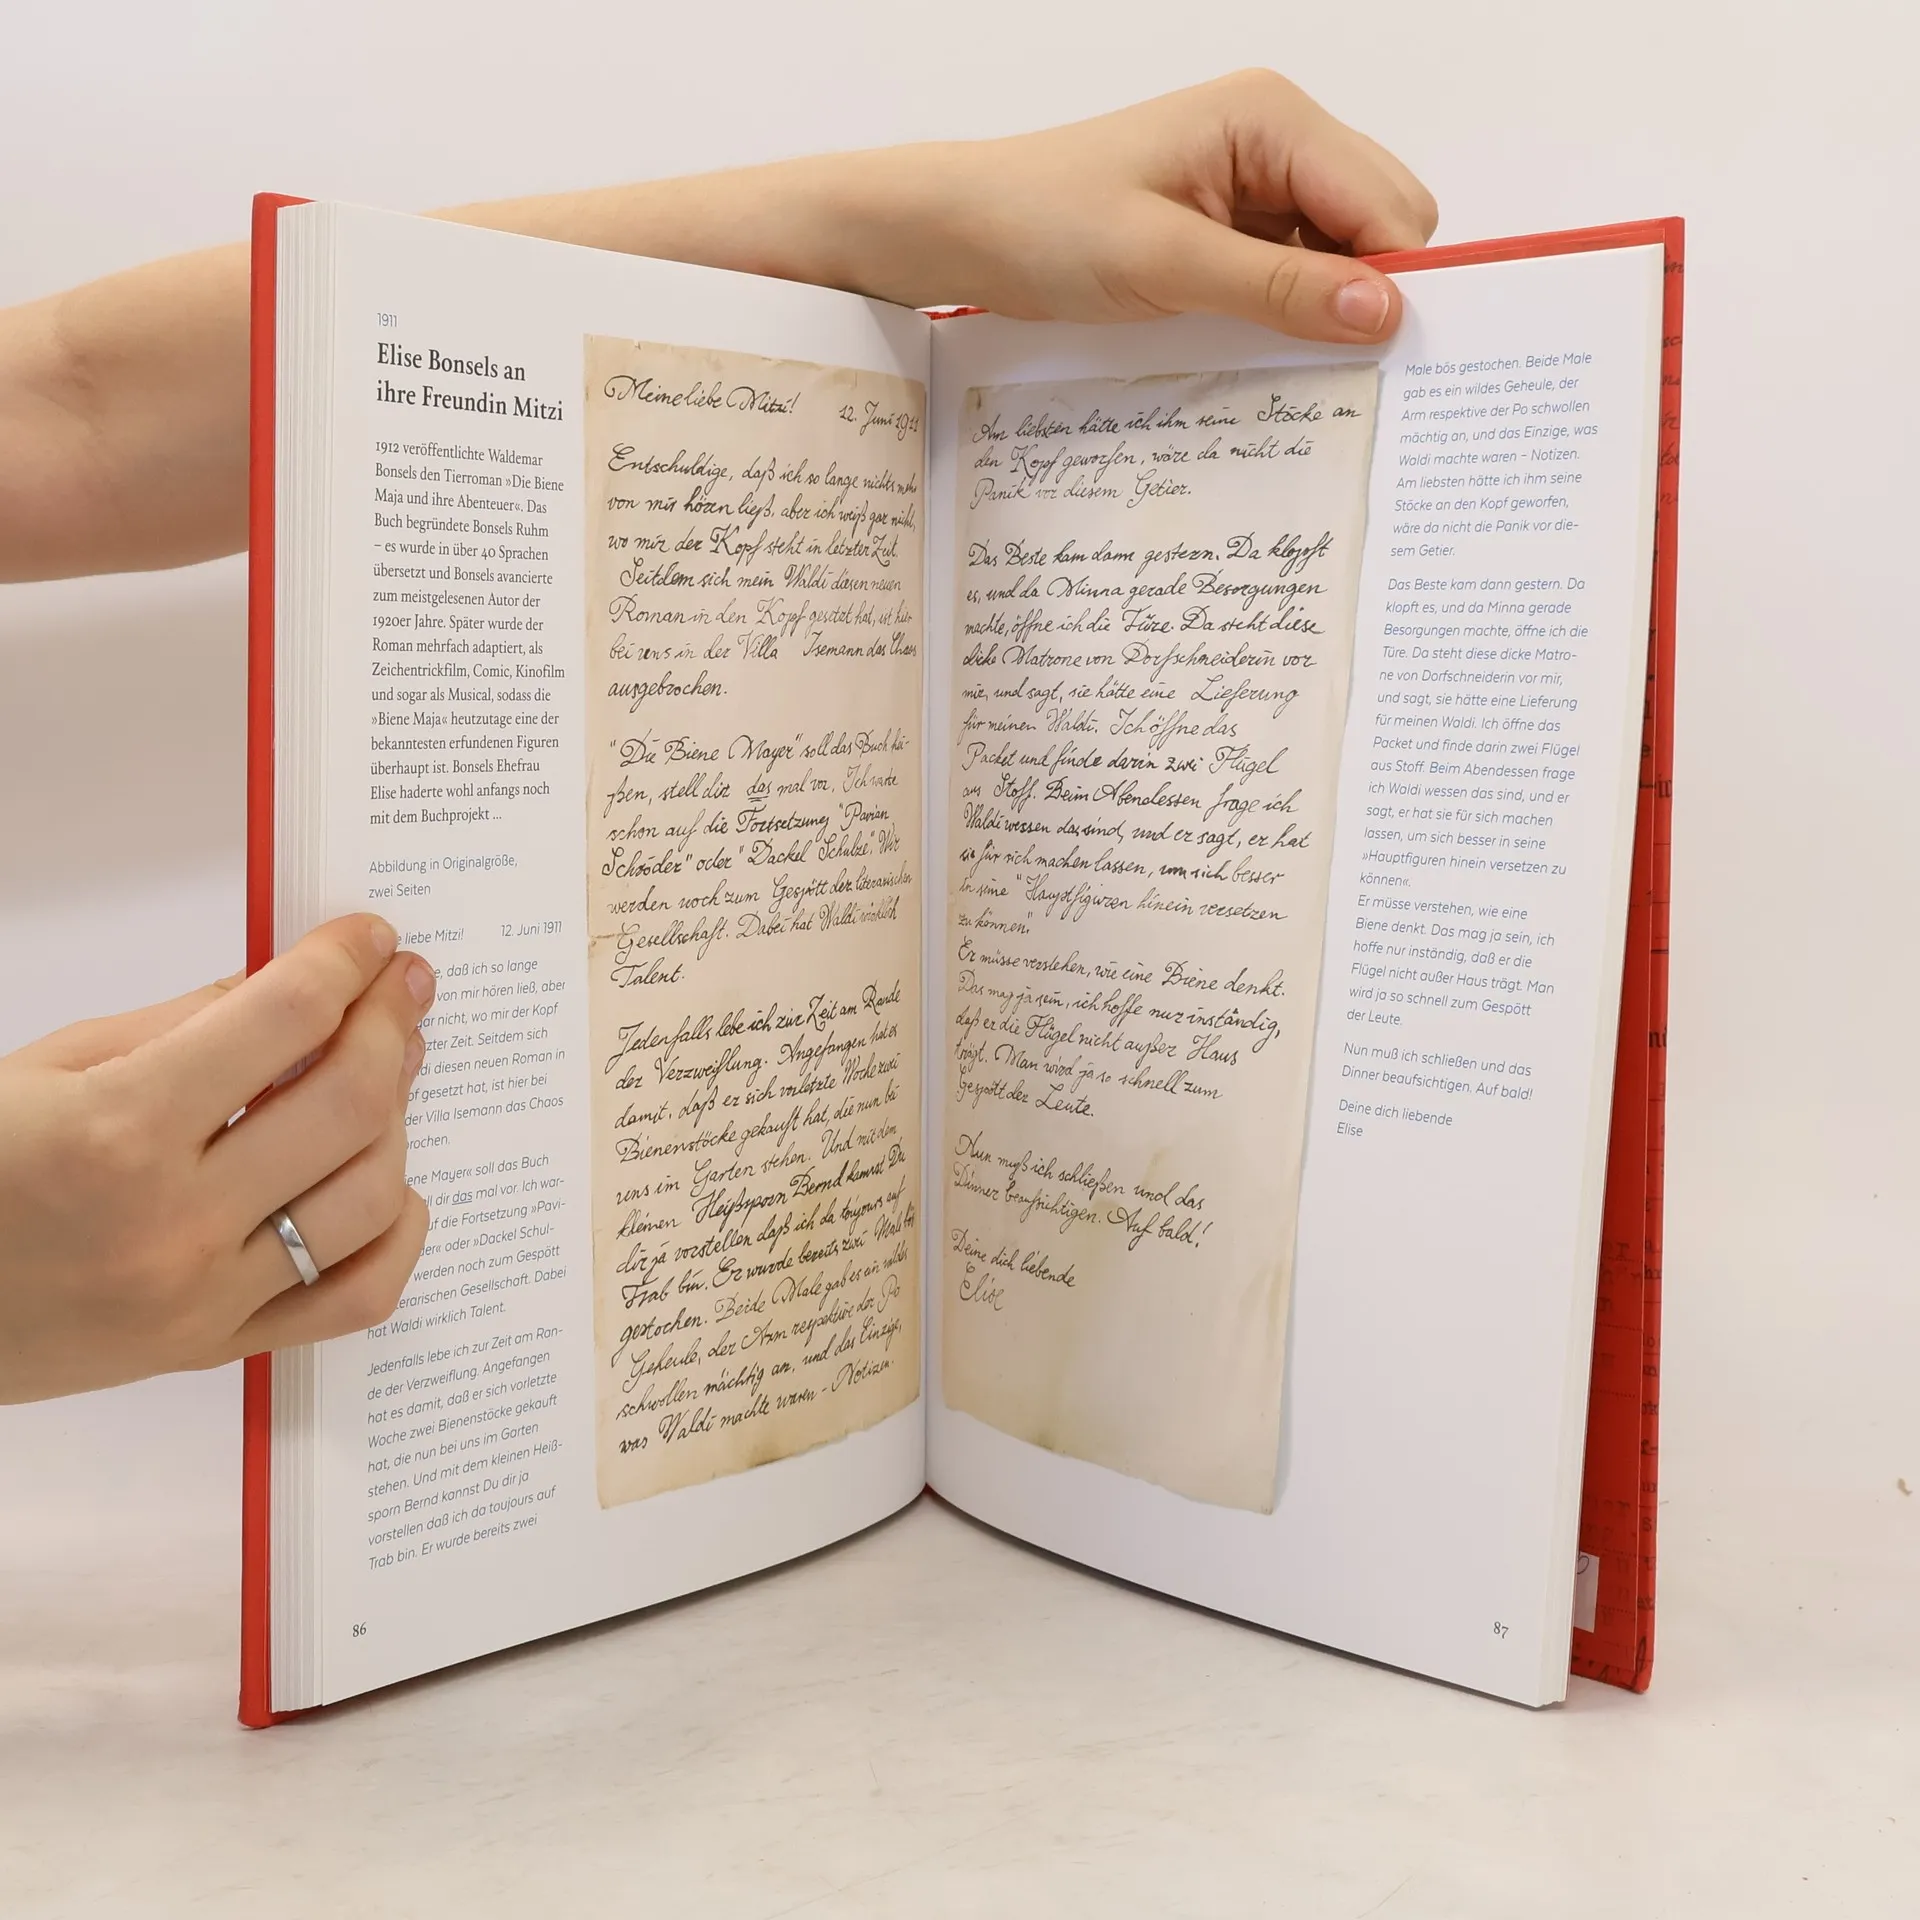 1911
Elise Bonsels an
ihre Freundin Mitzi
1912 veröffentlichte Waldemar
Bonsels den Tierroman »Die Biene
Maja und ihre Abenteuer«. Das
Buch begründete Bonsels Ruhm
– es wurde in über 40 Sprachen
übersetzt und Bonsels avancierte
zum meistgelesenen Autor der
1920er Jahre. Später wurde der
Roman mehrfach adaptiert, als
Zeichentrickfilm, Comic, Kinofilm
und sogar als Musical, sodass die
»Biene Maja« heutzutage eine der
bekanntesten erfundenen Figuren
überhaupt ist. Bonsels Ehefrau
Elise haderte wohl anfangs noch
mit dem Buchprojekt ...
Abbildung in Originalgröße,
zwei Seiten
e liebe Mitzi! 12. Juni 1911
e, daß ich so lange
von mir hören ließ, aber
gar nicht, wo mir der Kopf
tzter Zeit. Seitdem sich
di diesen neuen Roman in
pf gesetzt hat, ist hier bei
der Villa Isemann das Chaos
rochen.
ene Mayer« soll das Buch
ll dir das mal vor. Ich war-
uf die Fortsetzung »Pavi-
der« oder »Dackel Schul-
werden noch zum Gespött
erarischen Gesellschaft. Dabei
hat Waldi wirklich Talent.
Jedenfalls lebe ich zur Zeit am Ran-
de der Verzweiflung. Angefangen
hat es damit, daß er sich vorletzte
Woche zwei Bienenstöcke gekauft
hat, die nun bei uns im Garten
stehen. Und mit dem kleinen Heiß-
sporn Bernd kannst Du dir ja
vorstellen daß ich da toujours auf
Trab bin. Er wurde bereits zwei
86
Meine liebe Mitzi! 12. Juni 1911
Entschuldige, daß ich so lange nichts mehr
von mir hören ließ, aber ich weiß gar nicht,
wo mir der Kopf steht in letzter Zeit.
Seitdem sich mein Waldi diesen neuen
Roman in den Kopf gesetzt hat, ist hier
bei uns in der Villa Isemann das Chaos
ausgebrochen.
"Die Biene Mayer" soll das Buch hei-
ßen, stell dir das mal vor. Ich warte
schon auf die Fortsetzung "Pavian
Schröder" oder "Dackel Schulze". Wir
werden noch zum Gespött der literarischen
Gesellschaft. Dabei hat Waldi wirklich
Talent.
Jedenfalls lebe ich zur Zeit am Rande
der Verzweiflung. Angefangen hat es
damit, daß er sich vorletzte Woche zwei
Bienenstöcke gekauft hat, die nun bei
uns im Garten stehen. Und mit dem
kleinen Heißsporn Bernd kannst Du
dir ja vorstellen daß ich da toujours auf
Trab bin. Er wurde bereits zwei Male bös
gestochen. Beide Male gab es ein wildes
Geheule, der Arm respektive der Po
schwollen mächtig an, und das Einzige,
was Waldi machte waren - Notizen.
Am liebsten hätte ich ihm seine Stöcke an
den Kopf geworfen, wäre da nicht die
Panik vor diesem Getier.
Das Beste kam dann gestern. Da klopft
es, und da Minna gerade Besorgungen
machte, öffne ich die Türe. Da steht diese
dicke Matrone von Dorfschneiderin vor
mir, und sagt, sie hätte eine Lieferung
für meinen Waldi. Ich öffne das
Packet und finde darin zwei Flügel
aus Stoff. Beim Abendessen frage ich
Waldi wessen das sind, und er sagt, er hat
sie für sich machen lassen, um sich besser
in seine "Hauptfiguren hinein versetzen
zu können".
Er müsse verstehen, wie eine Biene denkt.
Das mag ja sein, ich hoffe nur inständig,
daß er die Flügel nicht außer Haus
trägt. Man wird ja so schnell zum
Gespött der Leute.
Nun muß ich schließen und das
Dinner beaufsichtigen. Auf bald!
Deine dich liebende
Elise
Male bös gestochen. Beide Male
gab es ein wildes Geheule, der
Arm respektive der Po schwollen
mächtig an, und das Einzige, was
Waldi machte waren – Notizen.
Am liebsten hätte ich ihm seine
Stöcke an den Kopf geworfen,
wäre da nicht die Panik vor die-
sem Getier.
Das Beste kam dann gestern. Da
klopft es, und da Minna gerade
Besorgungen machte, öffne ich die
Türe. Da steht diese dicke Matro-
ne von Dorfschneiderin vor mir,
und sagt, sie hätte eine Lieferung
für meinen Waldi. Ich öffne das
Packet und finde darin zwei Flügel
aus Stoff. Beim Abendessen frage
ich Waldi wessen das sind, und er
sagt, er hat sie für sich machen
lassen, um sich besser in seine
»Hauptfiguren hinein versetzen zu
können«.
Er müsse verstehen, wie eine
Biene denkt. Das mag ja sein, ich
hoffe nur inständig, daß er die
Flügel nicht außer Haus trägt. Man
wird ja so schnell zum Gespött
der Leute.
Nun muß ich schließen und das
Dinner beaufsichtigen. Auf bald!
Deine dich liebende
Elise
87